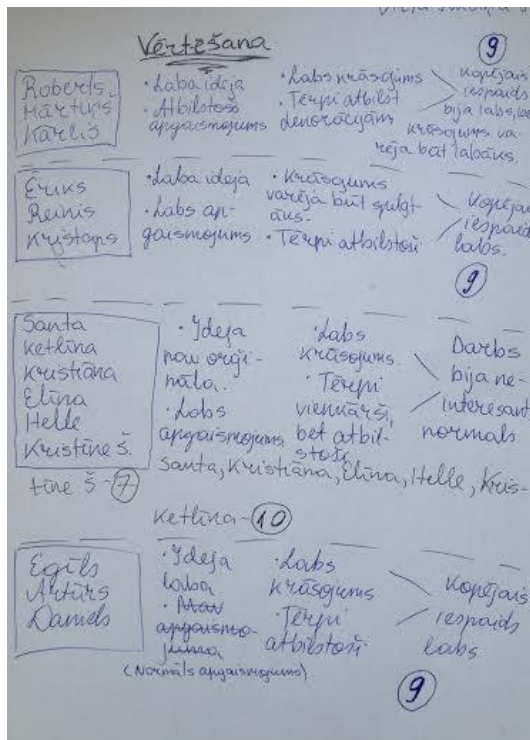 Vērtēšana
9
Roberts.
Mārtiņš
Kārlis
• Laba ideja
• Atbilstošs
apgaismojums
• Labs krāsojums
• Tērpi atbilst
dekorācijām
Kopējais
iespaids
bija labs,
krāsojums va-
rēja būt labāks.
Ēriks
Reinis
Kristaps
• Laba ideja
• Labs ap-
gaismojums
• Krāsojums
varēja būt spilgt-
āks.
• Tērpi atbilstoši
Kopējais
iespaids
labs.
9
Santa
Ketlīna
Kristiāna
Elīna
Helle
Kristīne Š.
• Ideja
nav orģi-
nāla.
• Labs
apgaismojums
• Labs
krāsojums.
• Tērpi
vienkārši,
bet atbil-
stoši
Darbs
bija ne-
interesants
normāls.
Santa, Kristiāna, Elīna, Helle, Kris-
tīne Š - 7
Ketlīna - 10
Egils
Artūrs
Daniels
• Ideja
laba
• Nav
apgaismo-
juma
(Normāls apgaismojums)
• Labs
krāsojums
• Tērpi
atbilstoši
Kopējais
iespaids
labs
9